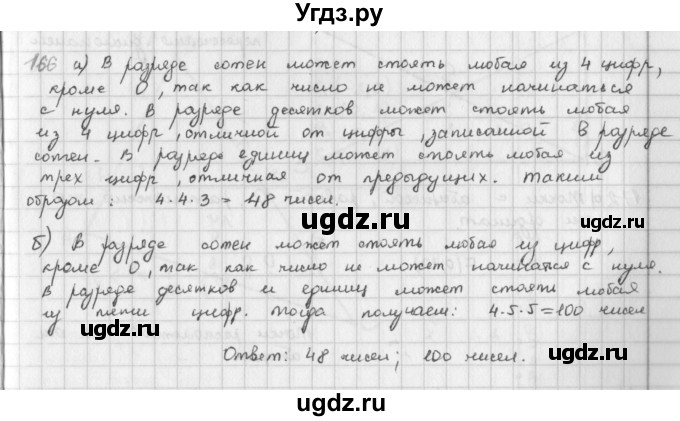 Угдз.ру
166 а) В разряде сотен может стоять любая из 4 цифр,
кроме 0, так как число не может начинаться
с нуля. В разряде десятков может стоять любая
из 4 цифр, отличной от цифры, записанной в разряде
сотен. В разряде единиц может стоять любая из
трех цифр, отличная от предыдущих. Таким
образом: 4·4·3=48 чисел.
ugdz.ru
ugdz.ru
б) В разряде сотен может стоять любая из цифр,
кроме 0, так как число не может начинаться с нуля.
В разряде десятков и единиц может стоять любая
из пяти цифр. Тогда получаем: 4·5·5=100 чисел
ugdz.ru
ugdz.ru
Ответ: 48 чисел; 100 чисел.
ugdz.ru
ugdz.ru